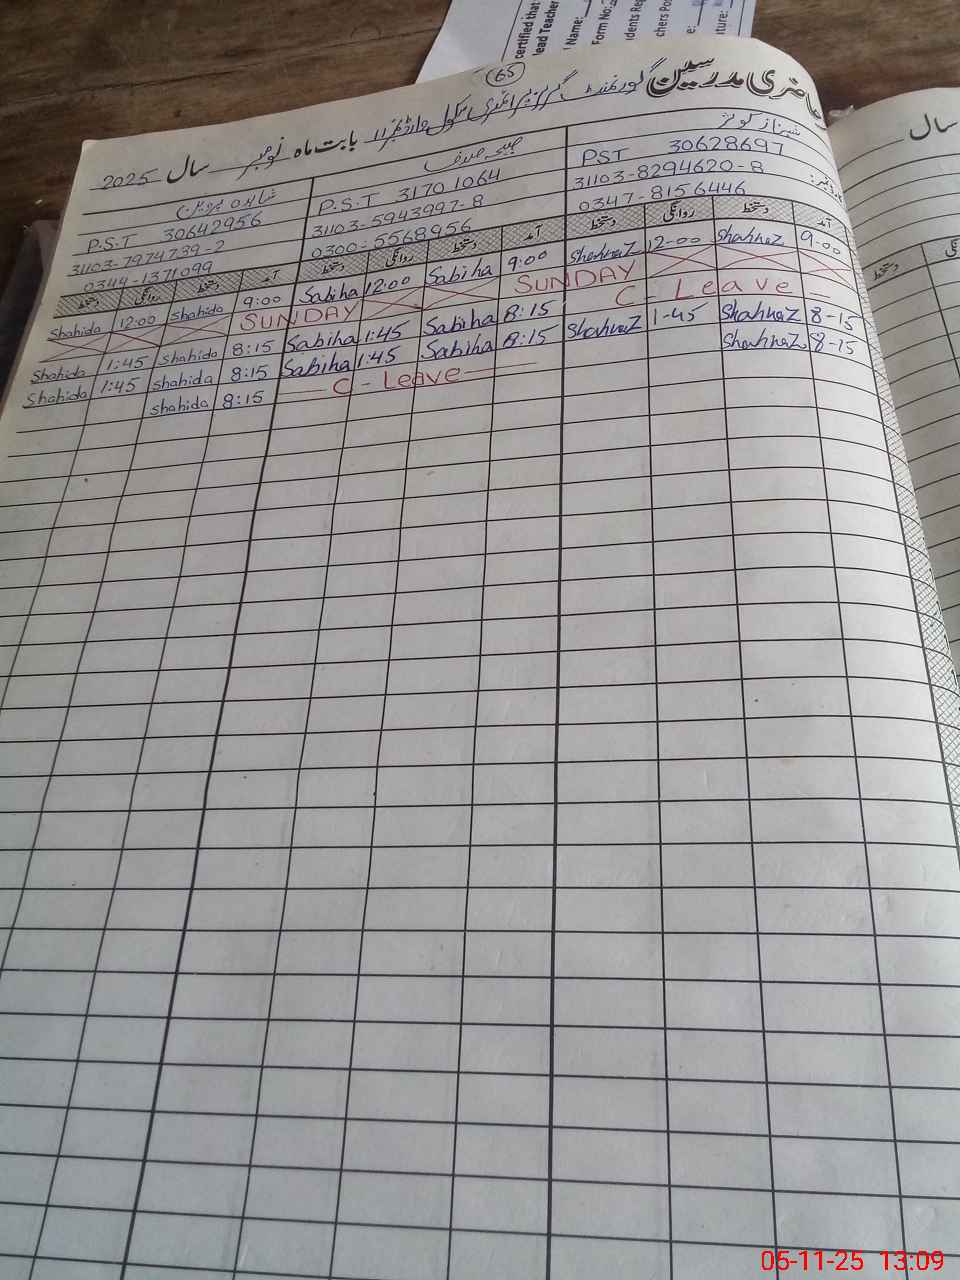 certified that
Head Teacher
Name:
Form No:
dents Re
chers Pos
ture:
65
حاضری مدرسین گورنمنٹ گرلز پرائمری سکول وارڈ نمبر 11 بابت ماہ نومبر سال 2025
سال
شہناز کوثر
PST 30628697
31103-8294620-8
0347-8156446
صبیحہ صدف
P.S.T 31701064
31103-5943997-8
0300-5568956
شاہدہ پروین
P.S.T 30642956
31103-7974739-2
0344-1371099
آمد دستخط روانگی دستخط آمد دستخط روانگی دستخط آمد دستخط روانگی دستخط
دستخط
9-00 ShahnaZ 12-00 ShahnaZ 9:00 Sabiha 12:00 Sabiha 9:00 Shahida 12:00 Shahida
SUNDAY SUNDAY
C - Leave
8:15 Sabiha 1:45 Sabiha 8:15 Shahida 1:45 Shahida
8-15 ShahnaZ 1-45 ShahnaZ 8:15 Sabiha 1:45 Sabiha 8:15 Shahida 1:45 Shahida
8-15 ShahnaZ C - Leave 8:15 Shahida
05-11-25 13:09